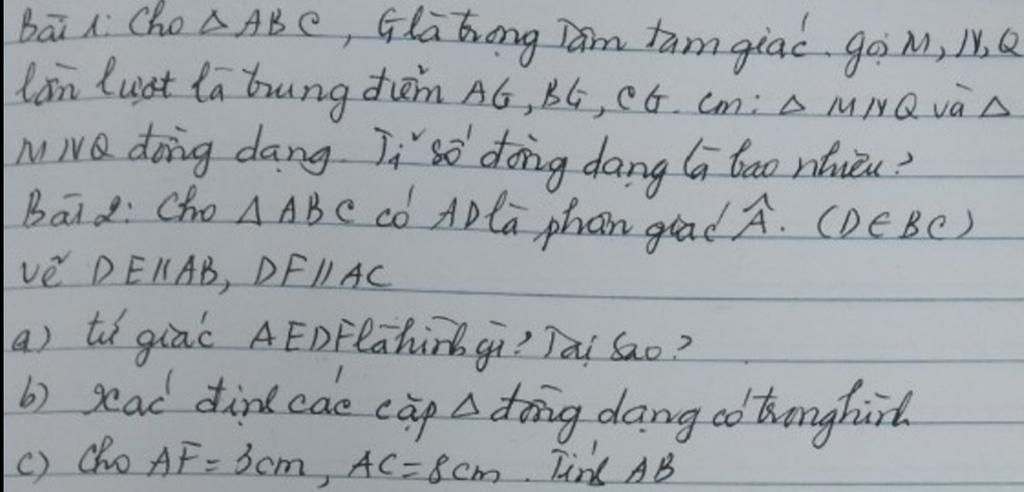 Bài 1: Cho △ ABC, G là trọng tâm tam giác. gọi M, N, Q
lần lượt là trung điểm AG, BG, CG. cm: △ MNQ và △
MNQ đồng dạng. Tỉ số đồng dạng là bao nhiêu?
Bài 2: Cho △ ABC có AD là phân giác Â. (D∈BC)
vẽ DE//AB, DF//AC
a) tứ giác AEDF là hình gì? Tại sao?
b) xác định các cặp △ đồng dạng có trong hình
c) Cho AF = 3cm, AC = 8cm. Tính AB